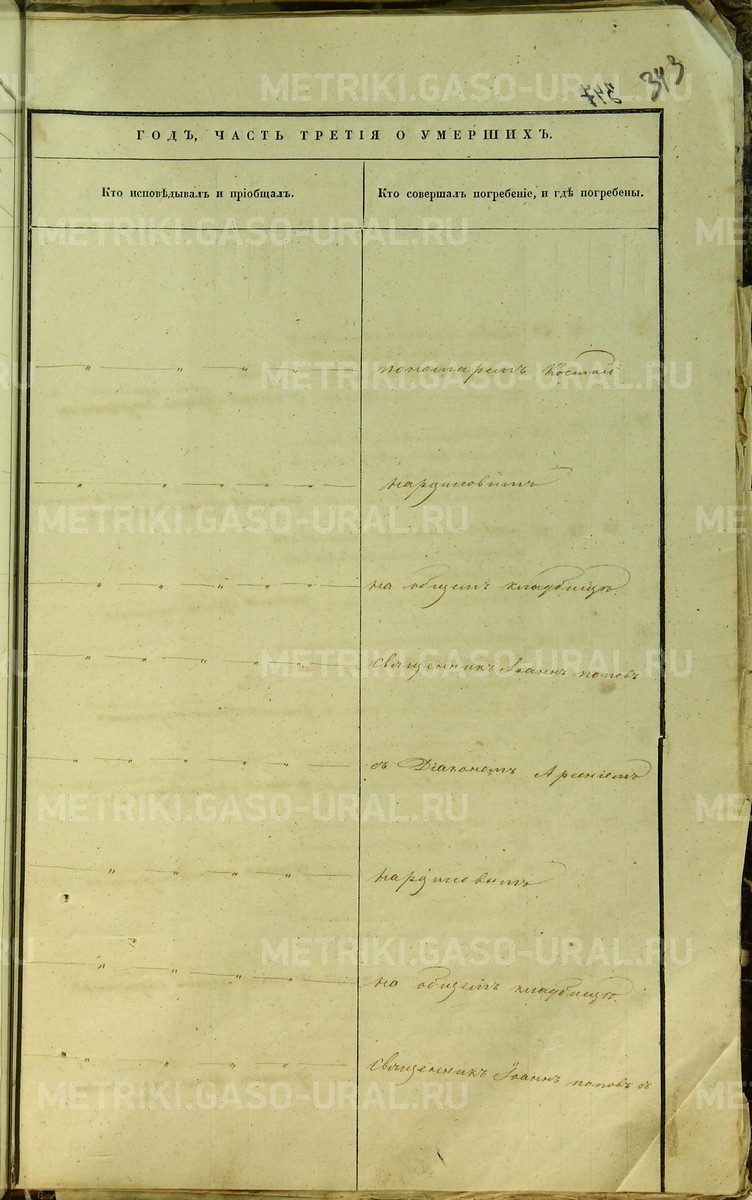 343
ГОДЪ, ЧАСТЬ ТРЕТІЯ О УМЕРШИХЪ.
Кто исповѣдывалъ и пріобщалъ.
Кто совершалъ погребеніе, и гдѣ погребены.
METRIKI.GASO-URAL.RU
пономаремъ
на общемъ кладбищѣ
священникъ Іоаннъ поповъ
съ Діакономъ Арсеніемъ
на общемъ кладбищѣ
священникъ Іоаннъ поповъ съ